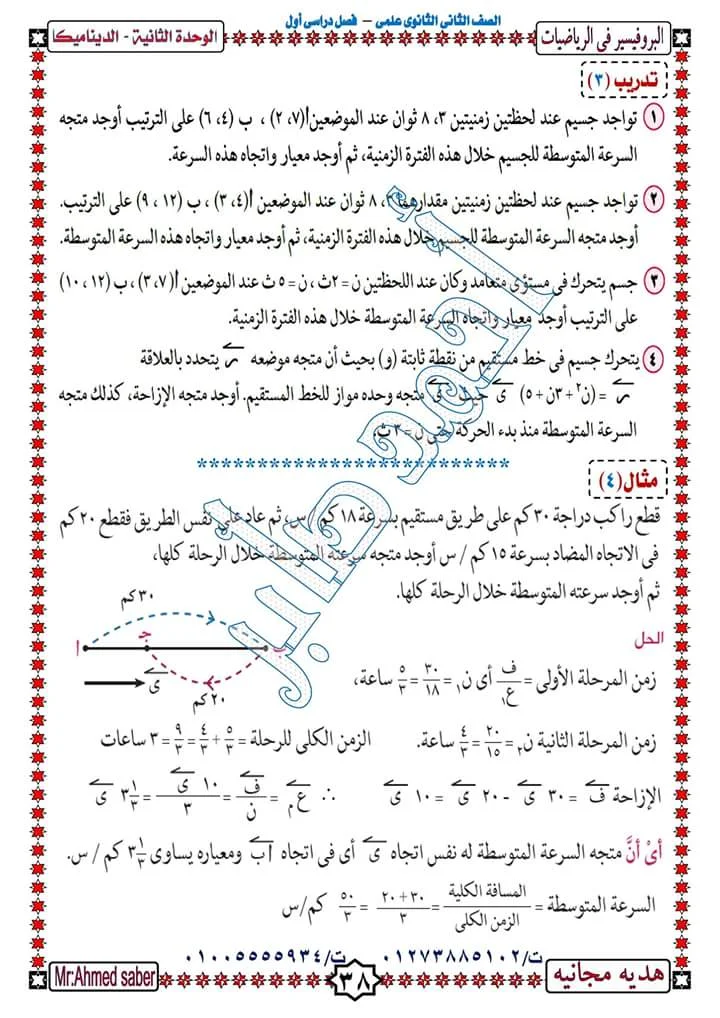 الصف الثانى الثانوى علمى – فصل دراسى أول
البروفيسير فى الرياضيات
الوحدة الثانية - الديناميكا
تدريب (٣)
١ تواجد جسيم عند لحظتين زمنيتين ٣، ٨ ثوان عند الموضعين أ(٧، ٢) ، ب (٤، ٦) على الترتيب أوجد متجه
السرعة المتوسطة للجسيم خلال هذه الفترة الزمنية، ثم أوجد معيار واتجاه هذه السرعة.
٢ تواجد جسيم عند لحظتين زمنيتين مقدارهما ٣، ٨ ثوان عند الموضعين أ(٤، ٣) ، ب (١٢ ، ٩) على الترتيب.
أوجد متجه السرعة المتوسطة للجسيم خلال هذه الفترة الزمنية، ثم أوجد معيار واتجاه هذه السرعة المتوسطة.
٣ جسم يتحرك فى مستوى متعامد وكان عند اللحظتين ن = ٢ث ، ن = ٥ ث عند الموضعين أ( ٧، ٣) ، ب (١٢ ، ١٠)
على الترتيب أوجد معيار واتجاه السرعة المتوسطة خلال هذه الفترة الزمنية.
٤ يتحرك جسيم فى خط مستقيم من نقطة ثابتة (و) بحيث أن متجه موضعه ر يتحدد بالعلاقة
ر = (ن٢ + ٣ن + ٥) ى حيث ى متجه وحده مواز للخط المستقيم. أوجد متجه الإزاحة، كذلك متجه
السرعة المتوسطة منذ بدء الحركة حتى ن = ٣ ث.
**************************
مثال (٤)
قطع راكب دراجة ٣٠ كم على طريق مستقيم بسرعة ١٨ كم / س، ثم عاد على نفس الطريق فقطع ٢٠ كم
فى الاتجاه المضاد بسرعة ١٥ كم / س أوجد متجه سرعته المتوسطة خلال الرحلة كلها،
ثم أوجد سرعته المتوسطة خلال الرحلة كلها.
٣٠ كم
أ جـ ب
ى
٢٠ كم
الحل
زمن المرحلة الأولى = ف/ع١ أى ن١ = ٣٠/١٨ = ٥/٣ ساعة،
زمن المرحلة الثانية ن٢ = ٢٠/١٥ = ٤/٣ ساعة. الزمن الكلى للرحلة = ٥/٣ + ٤/٣ = ٩/٣ = ٣ ساعات
الإزاحة ف = ٣٠ ى - ٢٠ ى = ١٠ ى ∴ عم = ف/ن = ١٠ ى/٣ = ٣ ١/٣ ى
أىْ أنَّ متجه السرعة المتوسطة له نفس اتجاه ى أى فى اتجاه أب ومعياره يساوى ٣ ١/٣ كم / س.
السرعة المتوسطة = المسافة الكلية/الزمن الكلى = ٣٠ + ٢٠/٣ = ٥٠/٣ كم/س
ت/٠١٢٧٣٨٨٥١٠٢ ت/٠١٠٠٥٥٥٥٩٣٤
هديه مجانيه
٣٨
Mr.Ahmed saber
أحمد صابر